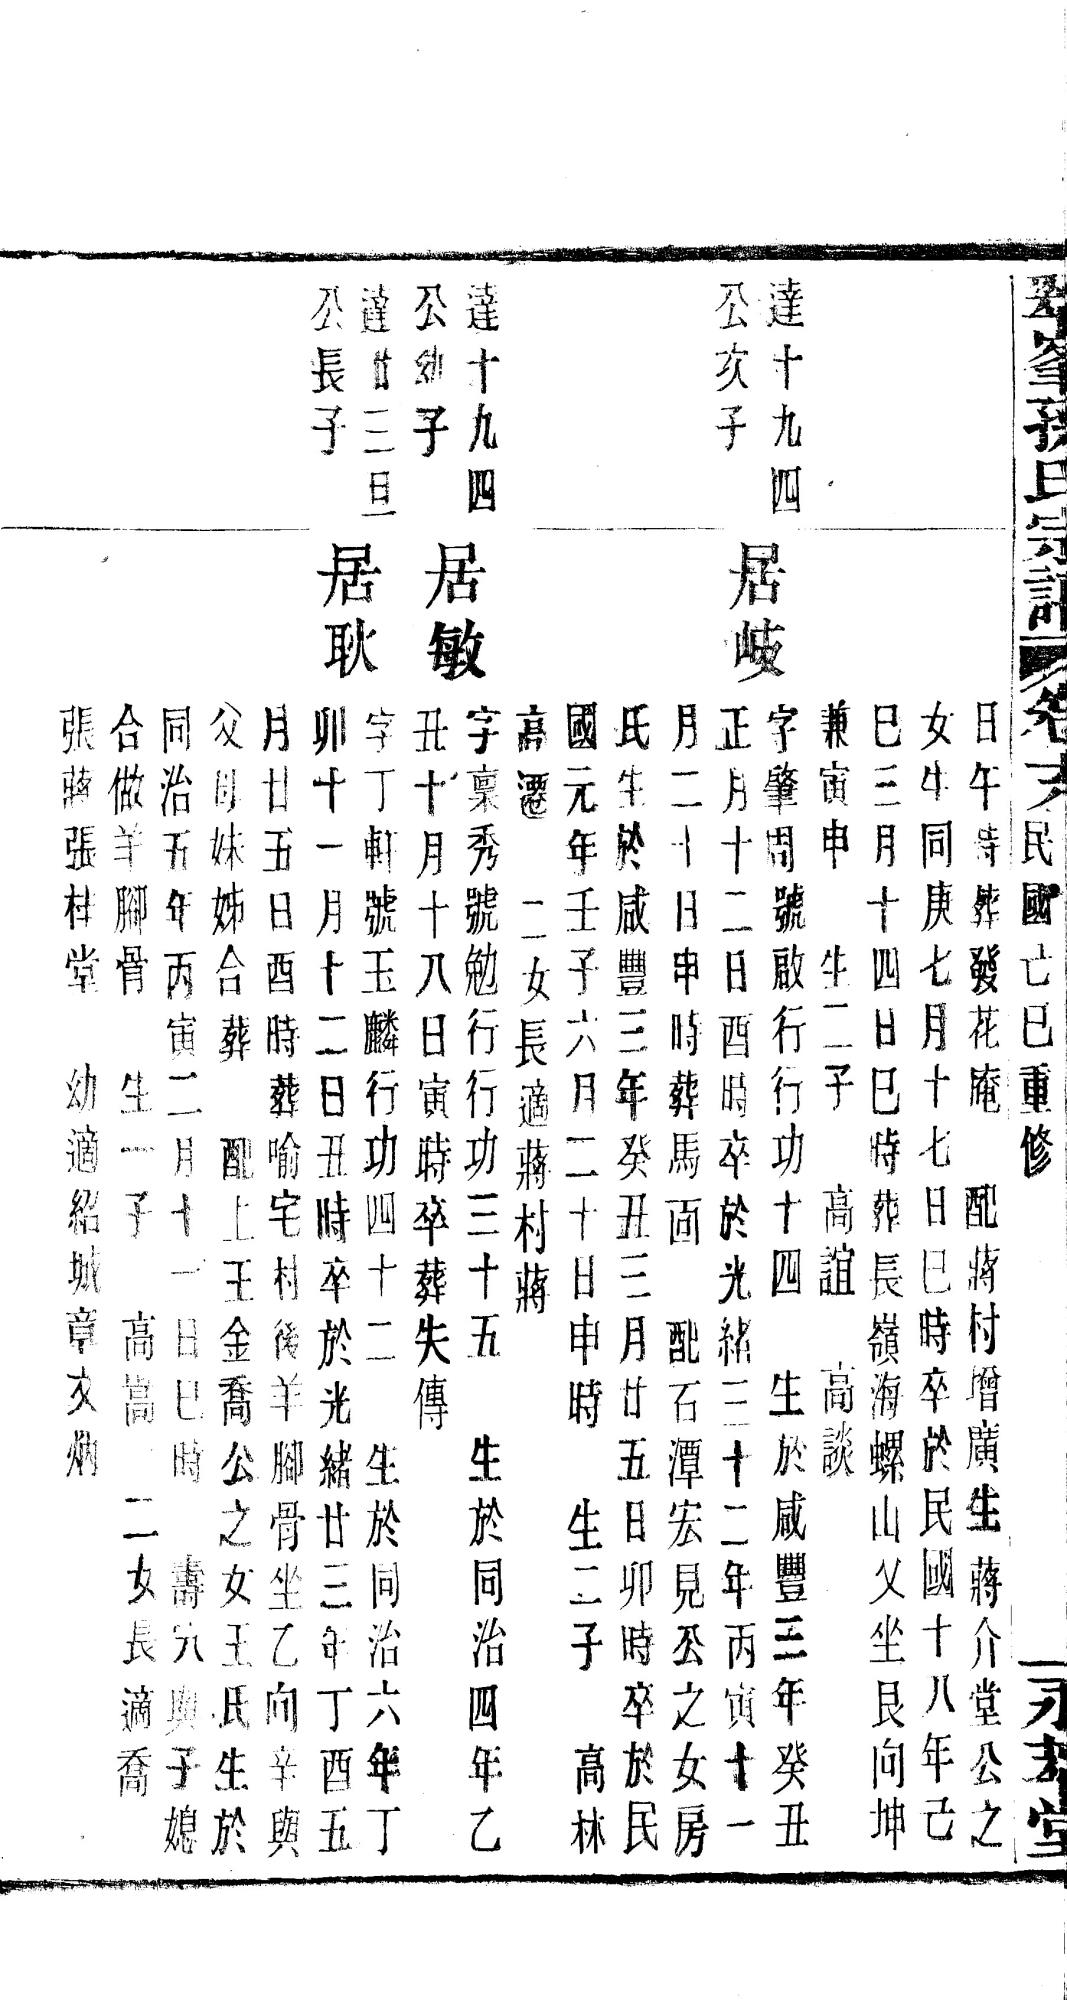 孫氏宗譜 卷六 民國己巳重修 永 堂
日午時葬發花庵 配蔣村增廣生蔣介堂公之
女生同庚七月十七日巳時卒於民國十八年己
巳三月十四日巳時葬長嶺海螺山父坐艮向坤
兼寅申 生二子 高誼 高談
達十九四
公次子
居歧
字肇周號啟行行功十四 生於咸豐三年癸丑
正月十二日酉時卒於光緒三十二年丙寅十一
月二十日申時葬馬面 配石潭宏見公之女房
氏生於咸豐三年癸丑三月廿五日卯時卒於民
國元年壬子六月二十日申時 生二子 高林
高遷 二女長適蔣村蔣
達十九四
公幼子
居敏
字稟秀號勉行行功三十五 生於同治四年乙
丑十月十八日寅時卒葬失傳
達廿三旦
公長子
居耿
字丁軒號玉麟行功四十二 生於同治六年丁
卯十一月十二日丑時卒於光緒廿三年丁酉五
月廿五日酉時葬喻宅村後羊腳骨坐乙向辛與
父母妹姊合葬 配上王金喬公之女王氏生於
同治五年丙寅二月十一日巳時 壽穴與子媳
合做羊腳骨 生一子 高嵩 二女長適喬
張蔣張桂堂 幼適紹城章文炳